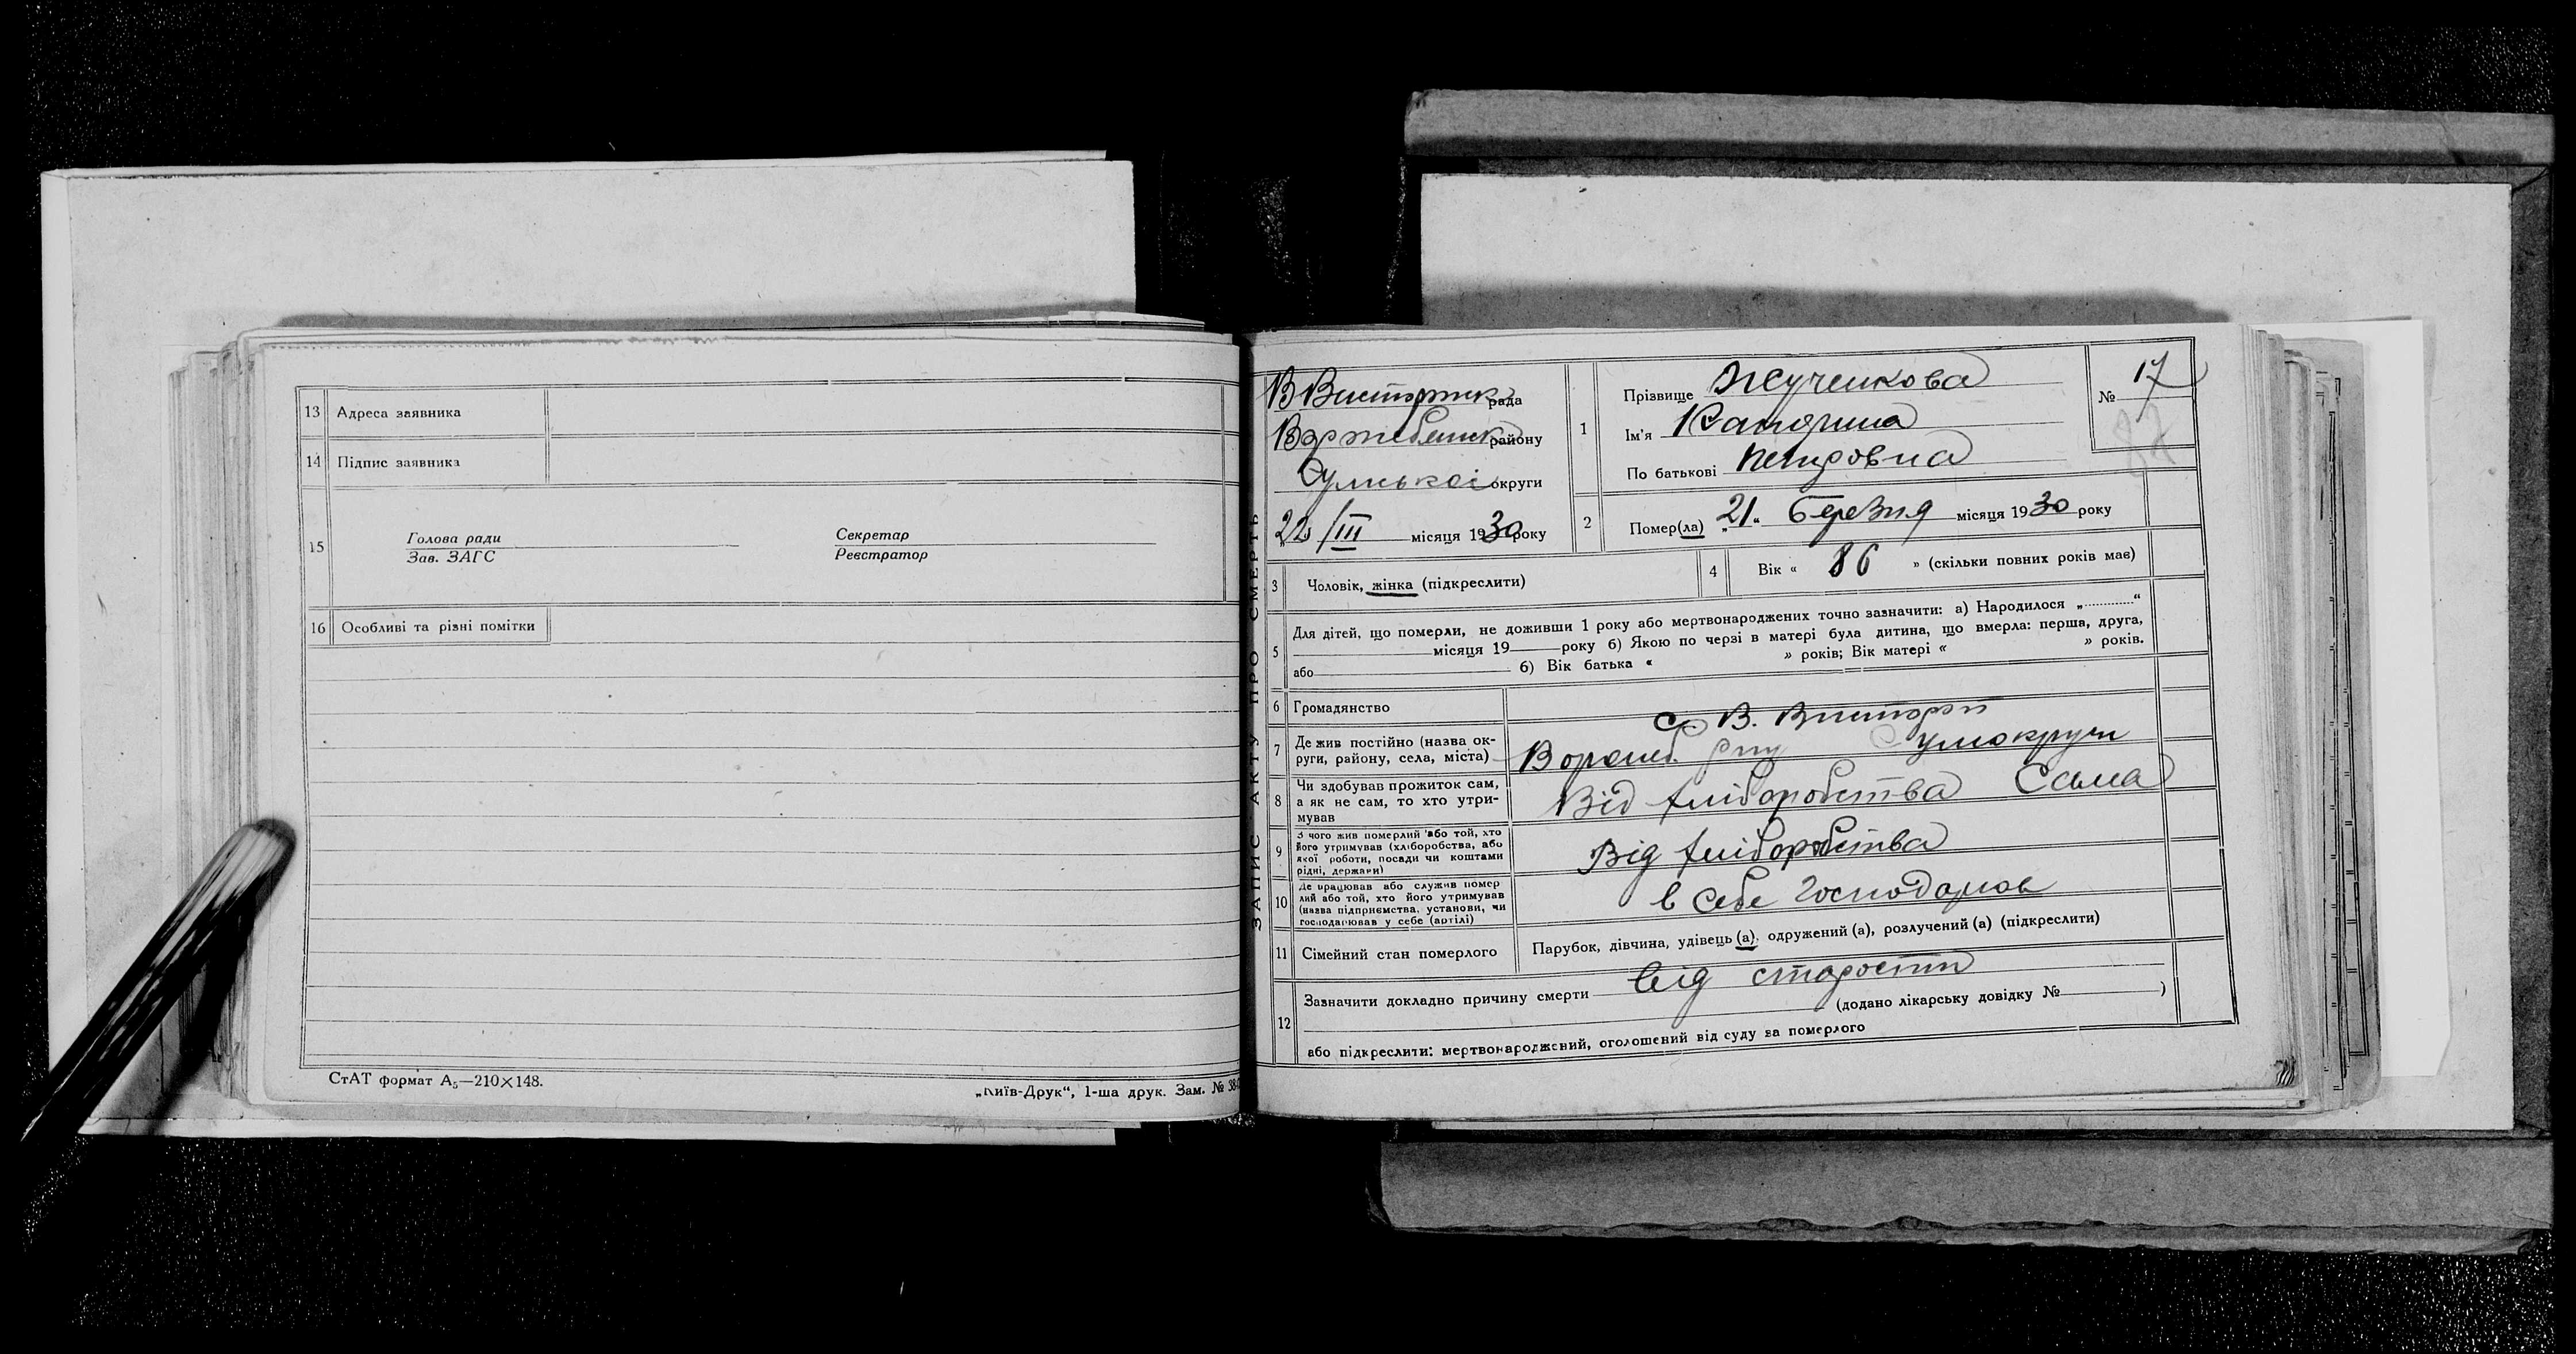 13 Адреса заявника
14 Підпис заявника
15 Голова ради Секретар
Зав. ЗАГС Реєстратор
16 Особливі та різні помітки
СтАТ формат А₅—210×148.
„Київ-Друк“, 1-ша друк. Зам. №
ЗАПИС АКТУ ПРО СМЕРТЬ
рада
району
Сумської округи
22/III місяця 1930 року
1 Прізвище Жученкова
Ім'я Каторина
По батькові Петровна
№ 17
2 Помер(ла) „21“ березня місяця 1930 року
3 Чоловік, жінка (підкреслити)
4 Вік « 86 » (скільки повних років має)
5 Для дітей, що померли, не доживши 1 року або мертвонароджених точно зазначити: а) Народилося „ “
місяця 19 року б) Якою по черзі в матері була дитина, що вмерла: перша, друга,
або б) Вік батька « » років; Вік матері « » років.
6 Громадянство
с В. Вистороп
7 Де жив постійно (назва ок-
руги, району, села, міста)
Ворожб. р-ну Сумокруги
8 Чи здобував прожиток сам,
а як не сам, то хто утри-
мував
Від хліборобства Сама
9 З чого жив померлий або той, хто
його утримував (хліборобства, або
якої роботи, посади чи коштами
рідні, держави)
Від хліборобства
10 Де працював або служив помер
лий або той, хто його утримував
(назва підприємства, установи, чи
господарював у себе (артілі)
в себе господарюв
11 Сімейний стан померлого Парубок, дівчина, удівець (а), одружений (а), розлучений (а) (підкреслити)
12 Зазначити докладно причину смерти від старости
(додано лікарську довідку № )
або підкреслити: мертвонароджений, оголошений від суду за померлого